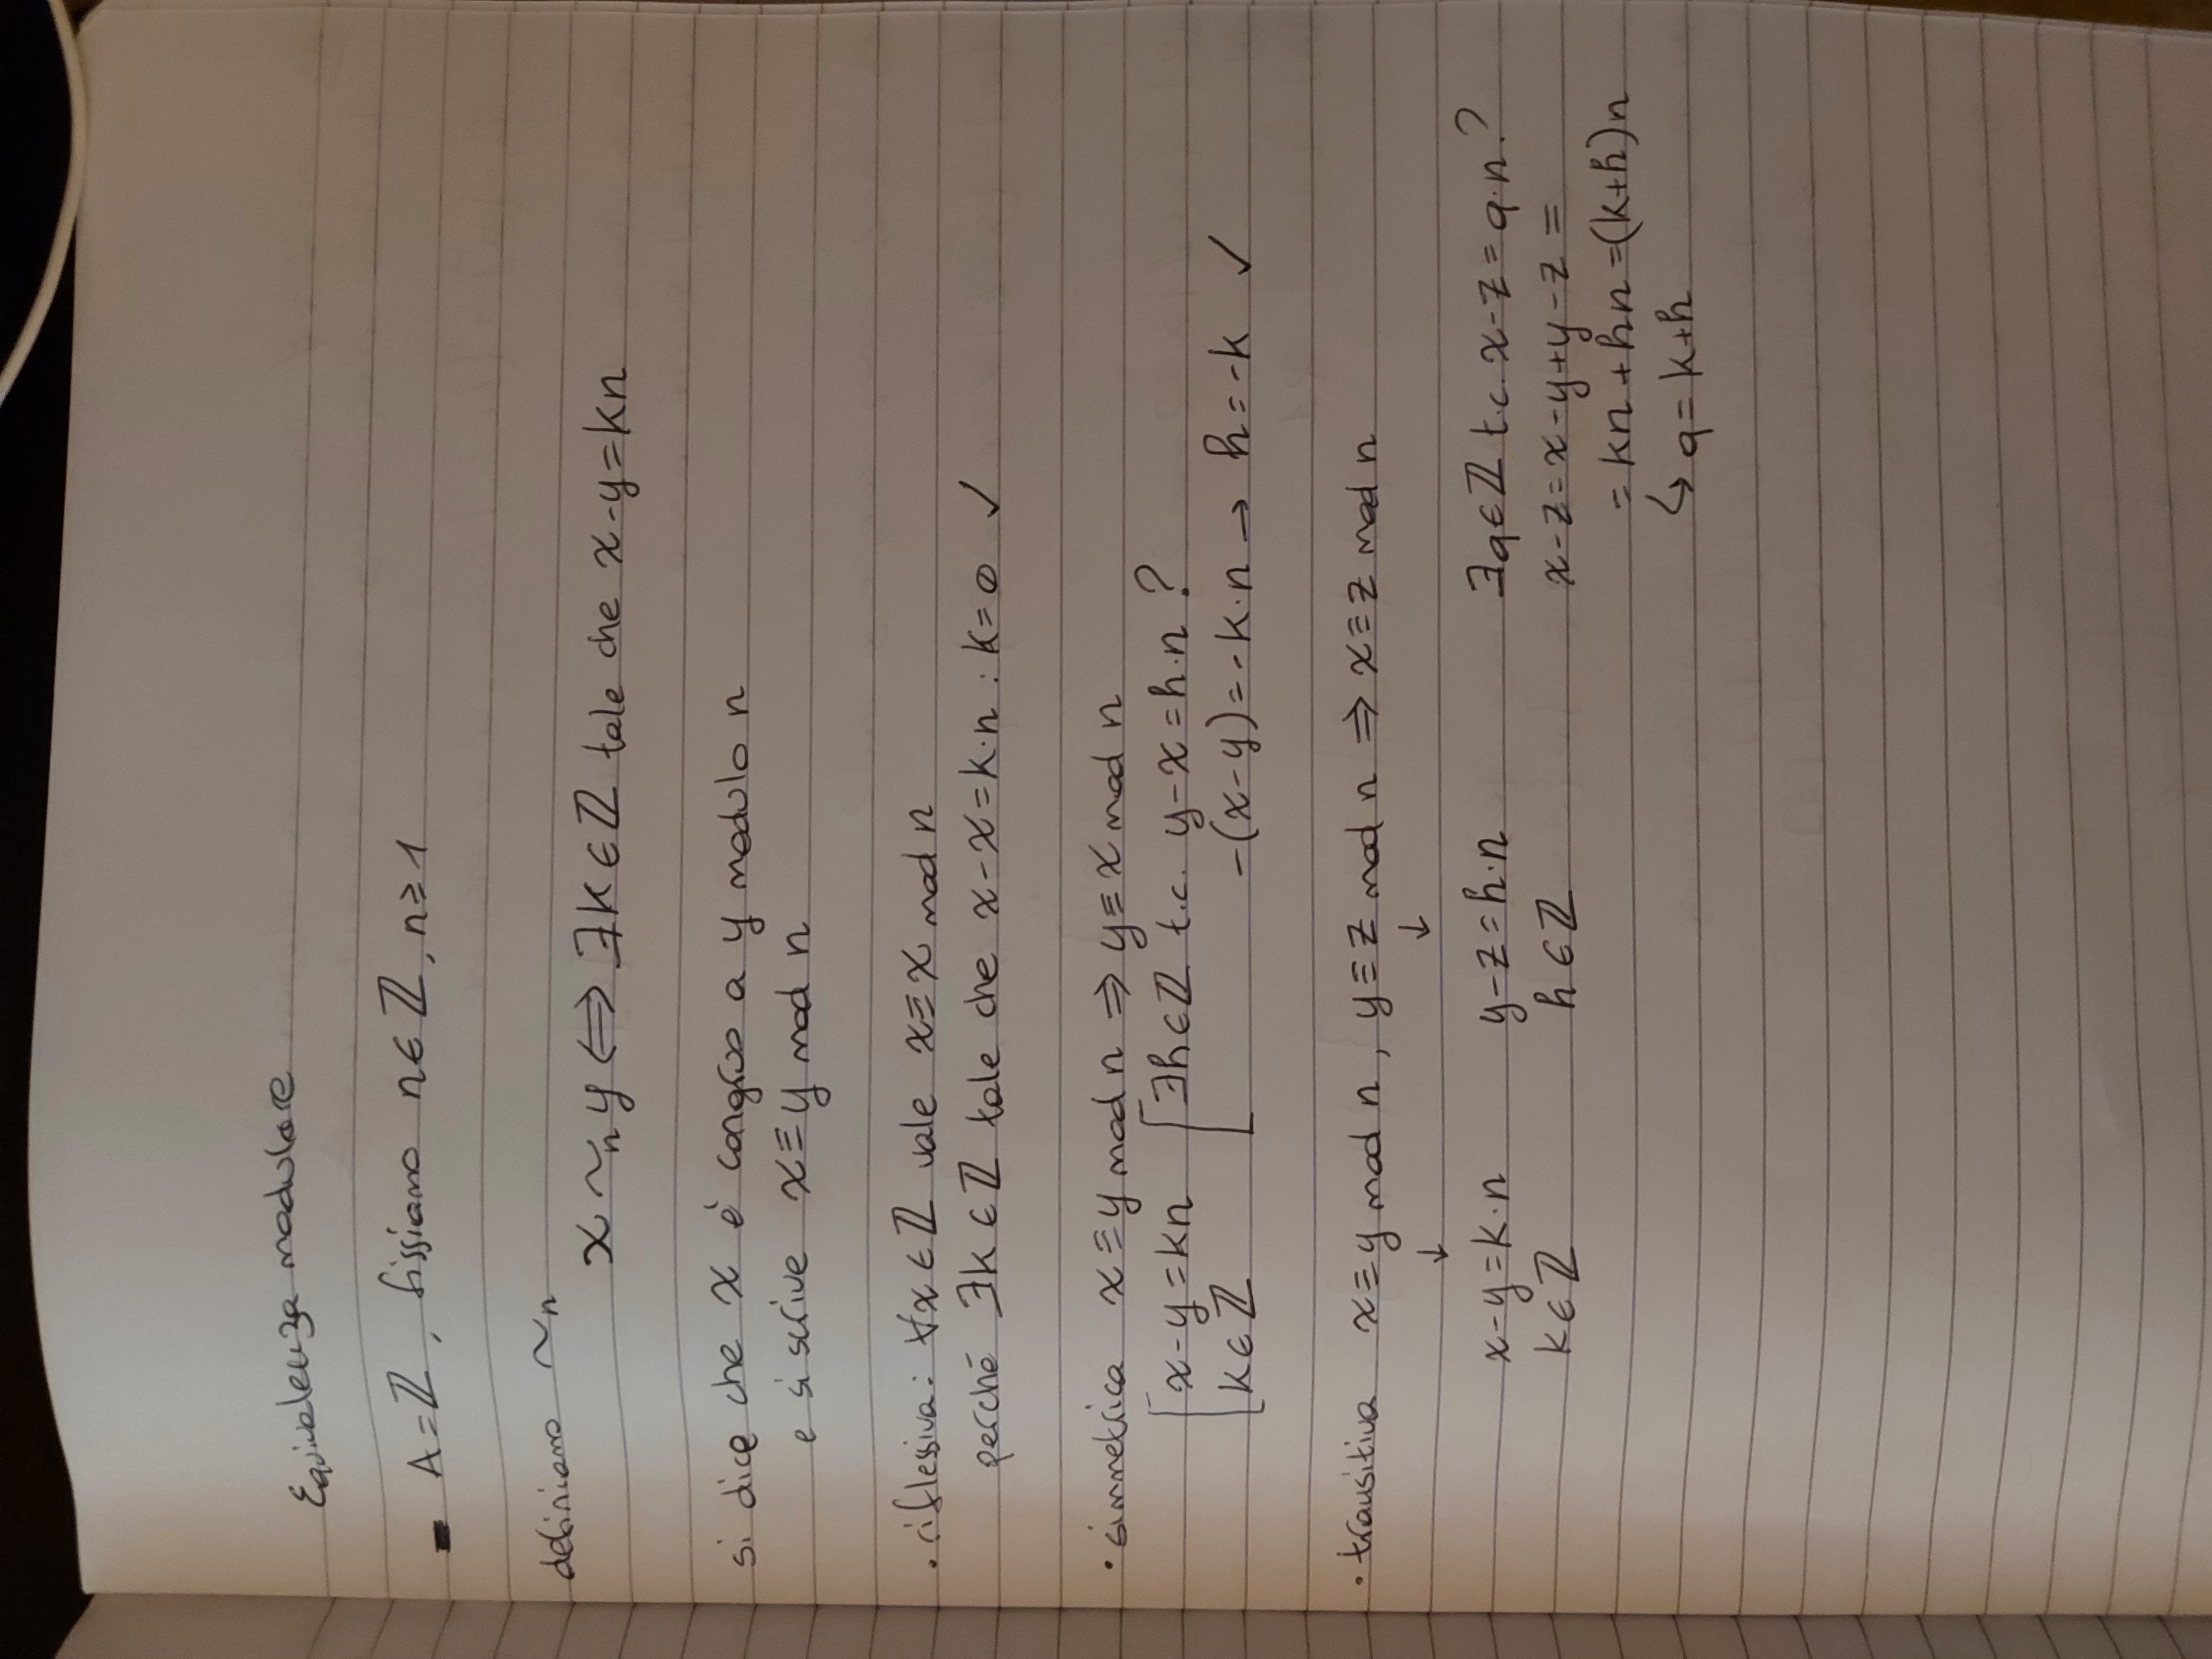 Equivalenza modulare
- A = ℤ, fissiamo n ∈ ℤ, n ≥ 1
definiamo ~ₙ
x ~ₙ y ⟺ ∃k ∈ ℤ tale che x-y = kn
si dice che x è congruo a y modulo n
e si scrive x ≡ y mod n
• riflessiva: ∀x ∈ ℤ vale x ≡ x mod n
perché ∃k ∈ ℤ tale che x - x = k·n : k = 0 ✓
• simmetrica x ≡ y mod n ⇒ y ≡ x mod n
[x - y = kn [∃h ∈ ℤ t.c. y - x = h·n ?
k ∈ ℤ -(x-y) = -k·n → h = -k ✓
• transitiva x ≡ y mod n, y ≡ z mod n ⇒ x ≡ z mod n
↓ ↓
x-y = k·n y-z = h·n ∃q ∈ ℤ t.c. x-z = q·n ?
k ∈ ℤ h ∈ ℤ x-z = x-y+y-z =
= kn + hn = (k+h)n
↳ q = k+h